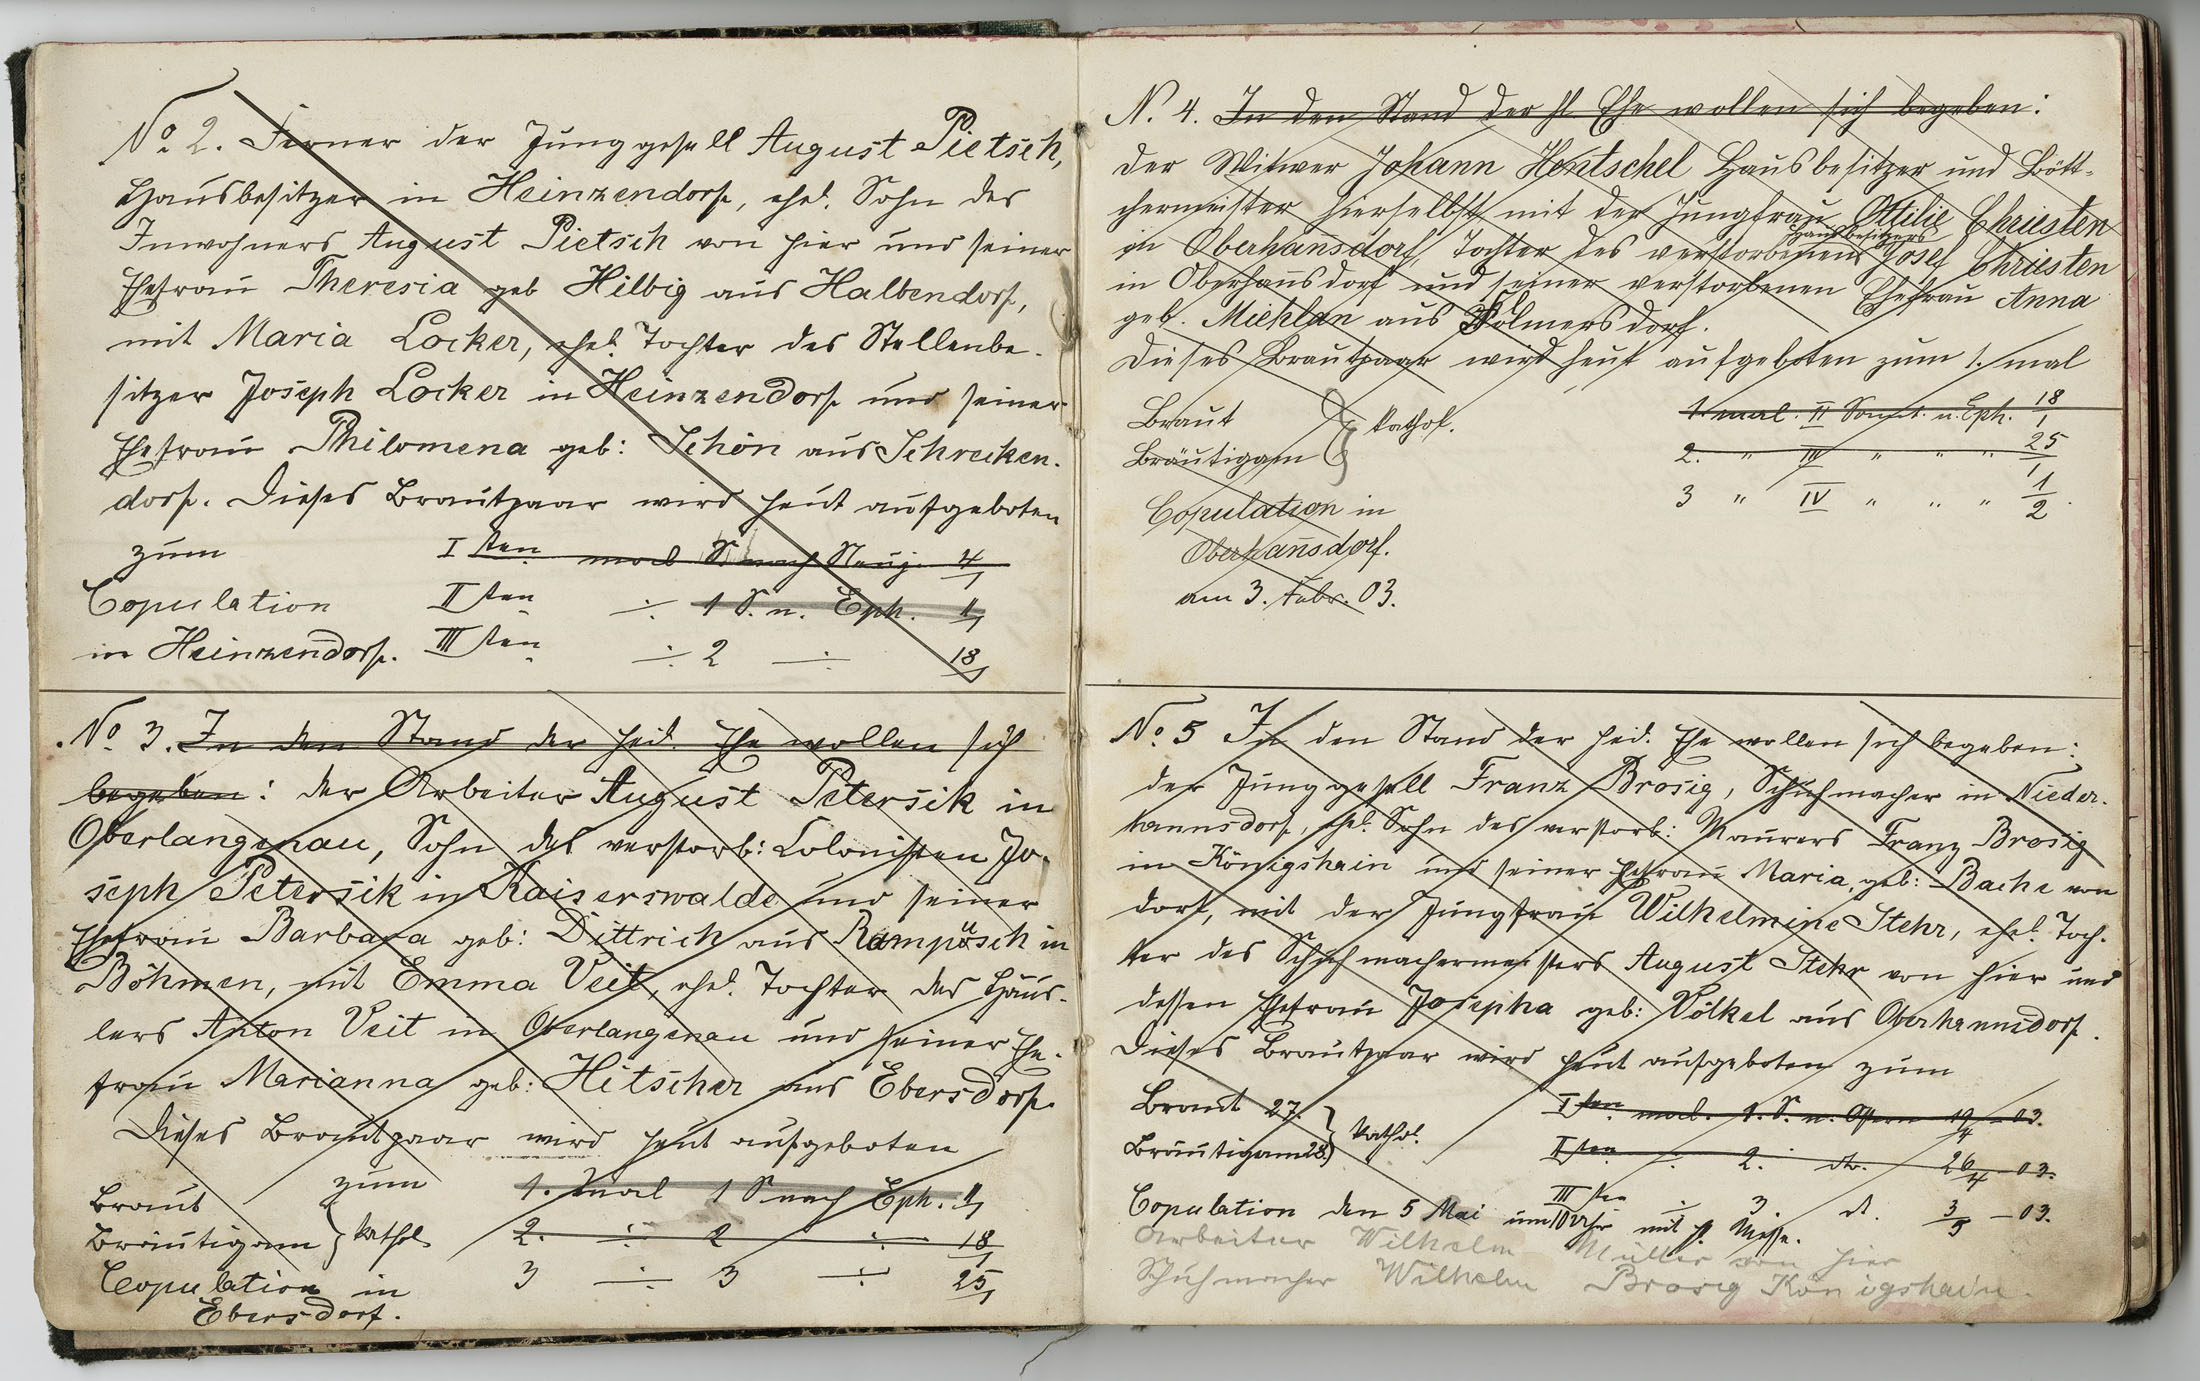 No 2. Ferner der Junggesell August Pietsch,
Hausbesitzer in Heinzendorf, ehel. Sohn des
Inwohners August Pietsch von hier und seiner
Ehefrau Theresia geb Hilbig aus Halbendorf,
mit Maria Locker, ehel. Tochter des Stellenbe-
sitzer Joseph Locker in Heinzendorf und seiner
Ehefrau Philomena geb: Schön aus Schrecken-
dorf. Dieses Brautpaar wird heut aufgeboten
zum I sten mal S. nach Neuj. 4/1
Copulation II ten ÷ 1 S. n. Eph. 11/1
in Heinzendorf. III ten ÷ 2 ÷ 18/1
No 3. In den Stand der heil. Ehe wollen sich
begeben: der Arbeiter August Petersik in
Oberlangenau, Sohn des verstorb: Colonisten Jo-
seph Petersik in Kaiserswalde und seiner
Ehefrau Barbara geb: Dittrich aus Rampusch in
Böhmen, mit Emma Veit, ehel. Tochter des Häus-
lers Anton Veit in Oberlangenau und seiner Ehe-
frau Marianna geb: Hitscher aus Ebersdorf.
Dieses Brautpaar wird heut aufgeboten
zum 1. mal 1 S nach Eph. 11/1
Braut
Bräutigam } kathol. 2. ÷ 2 ÷ 18/1
Copulation in 3 ÷ 3 ÷ 25/1
Ebersdorf.
N. 4. In den Stand der hl Ehe wollen sich begeben:
der Witwer Johann Hentschel Hausbesitzer und Bött-
chermeister hierselbst mit der Jungfrau Ottilie Christen
in Oberhansdorf, Tochter des verstorbenen Hausbesitzers Josef Christen
in Oberhansdorf und seiner verstorbenen Ehefrau Anna
geb. Michlan aus Wolmersdorf.
Dieses Brautpaar wird heut aufgeboten zum 1. mal
Braut } kathol. 1. mal. II Sonnt. n. Eph. 18/1
Bräutigam 2. " III " " " 25/1
3 " IV " " " 1/2
Copulation in
Oberhansdorf.
am 3. Febr. 03.
No. 5 In den Stand der heil. Ehe wollen sich begeben:
der Junggesell Franz Brosig, Schuhmacher in Nieder-
hannsdorf, ehel. Sohn des verstorb: Maurers Franz Brosig
in Königshain und seiner Ehefrau Maria, geb: Bache von
dort, mit der Jungfrau Wilhelmine Stehr, ehel. Toch-
ter des Schuhmachermeisters August Stehr von hier und
dessen Ehefrau Josepha geb: Völkel aus Oberhannsdorf.
Dieses Brautpaar wird heut aufgeboten zum
Braut 27. I ten mal. 1. S. n. Ostern 19/4 - 03.
Bräutigam 28. } kathol. II ten ÷ 2. do. 26/4 - 03.
III ten ÷ 3. do. 3/5 - 03.
Copulation den 5 Mai um 10 Uhr mit h. Messe.
Arbeiter Wilhelm Müller von hier
Schuhmacher Wilhelm Brosig Königshain.